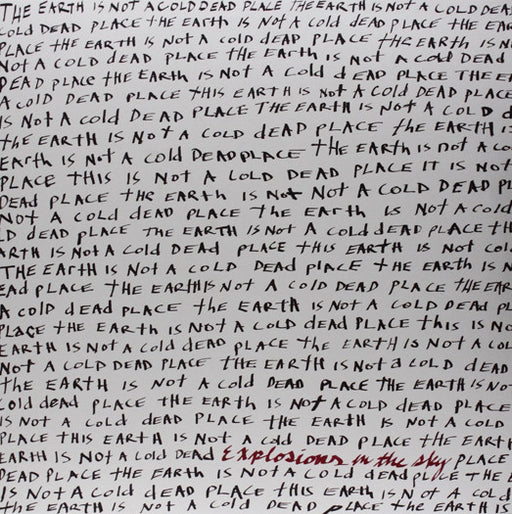 THE EARTH IS NOT A COLD DEAD PLACE THE EARTH IS NOT A COLD DEAD
COLD DEAD PLACE THE EARTH IS NOT A cold DEAD PLACE THE EAR
PLACE THE EARTH IS NOT A cold DEAD PLACE THE EARTH IS N
NOT A COLD dEAD PLACE THE EARTH is NOT A cold DEAD
DEAD PLACE THE EARTH IS NOT A Cold dEAD PLACE THE E
A cold DEAD PLACE THIS EARTH IS NOT A COLD DEAD PLACE
IS NOT A Cold DEAD PLACE THE EARTH IS NOT A COLD d
the EARTH IS NOT A COLD dEAD PLACE the EARTH IS
EARTH IS NOT A cold DEAD PLACE THE EARTH IS NOT A CO
PLACE THIS IS NOT A COLD DEAD PLACE IT IS NOT
DEAd PLACE THE EARTH IS NOT NOT A COLD DEAD PL
NOT A COLD dEAD PLACE THE EARTH IS NOT A Cold
LD dEAD PLACE THE EARTH IS NOT A COLD DEAD PLACE TH
ARTH IS NOT A Cold DEAd PLACE THIS EARTH IS NOT cold
THE EARTH IS NOT A COLD DEAd place THE EARTH IS N
EAd PLACE THE EARTH IS NOT A COLD DEAD PLACE THE EAR
A cold dEAd place THE EARTH IS NOT A COLD DEAd PL
PLACE THE EARTH IS NOT A COLD DEAD PLACE this IS NO
EARTH IS NOT A cold dEAD PLACE THE EARTH IS NOT A COLD
NOT A COLD DEAD PLACE THE EARTH IS NOT a COLD dEAD
the EARTH IS NOT A cold DEAD PLACE THE EARTH IS NO
COLD dEAD PLACE THE EARTH IS NOT A COLD dEAD PLACE
IS NOT A cold dEAD PLACE THE EARTH IS NOT A COLD
PLACE THIS EARTH IS NOT A cold DEAD PLACE THE EARTH
EARTH IS NOT A cold DEAd Explosions in the sky PLACE
DEAD PLACE THE EARTH IS NOT A COLD dEAd place THE E
IS NOT A COLD DEAD PLACE THIS EARTH IS NOT A cold
THE EARTH IS NOT A cold DEAD PLACE THE EARTH IS NOT